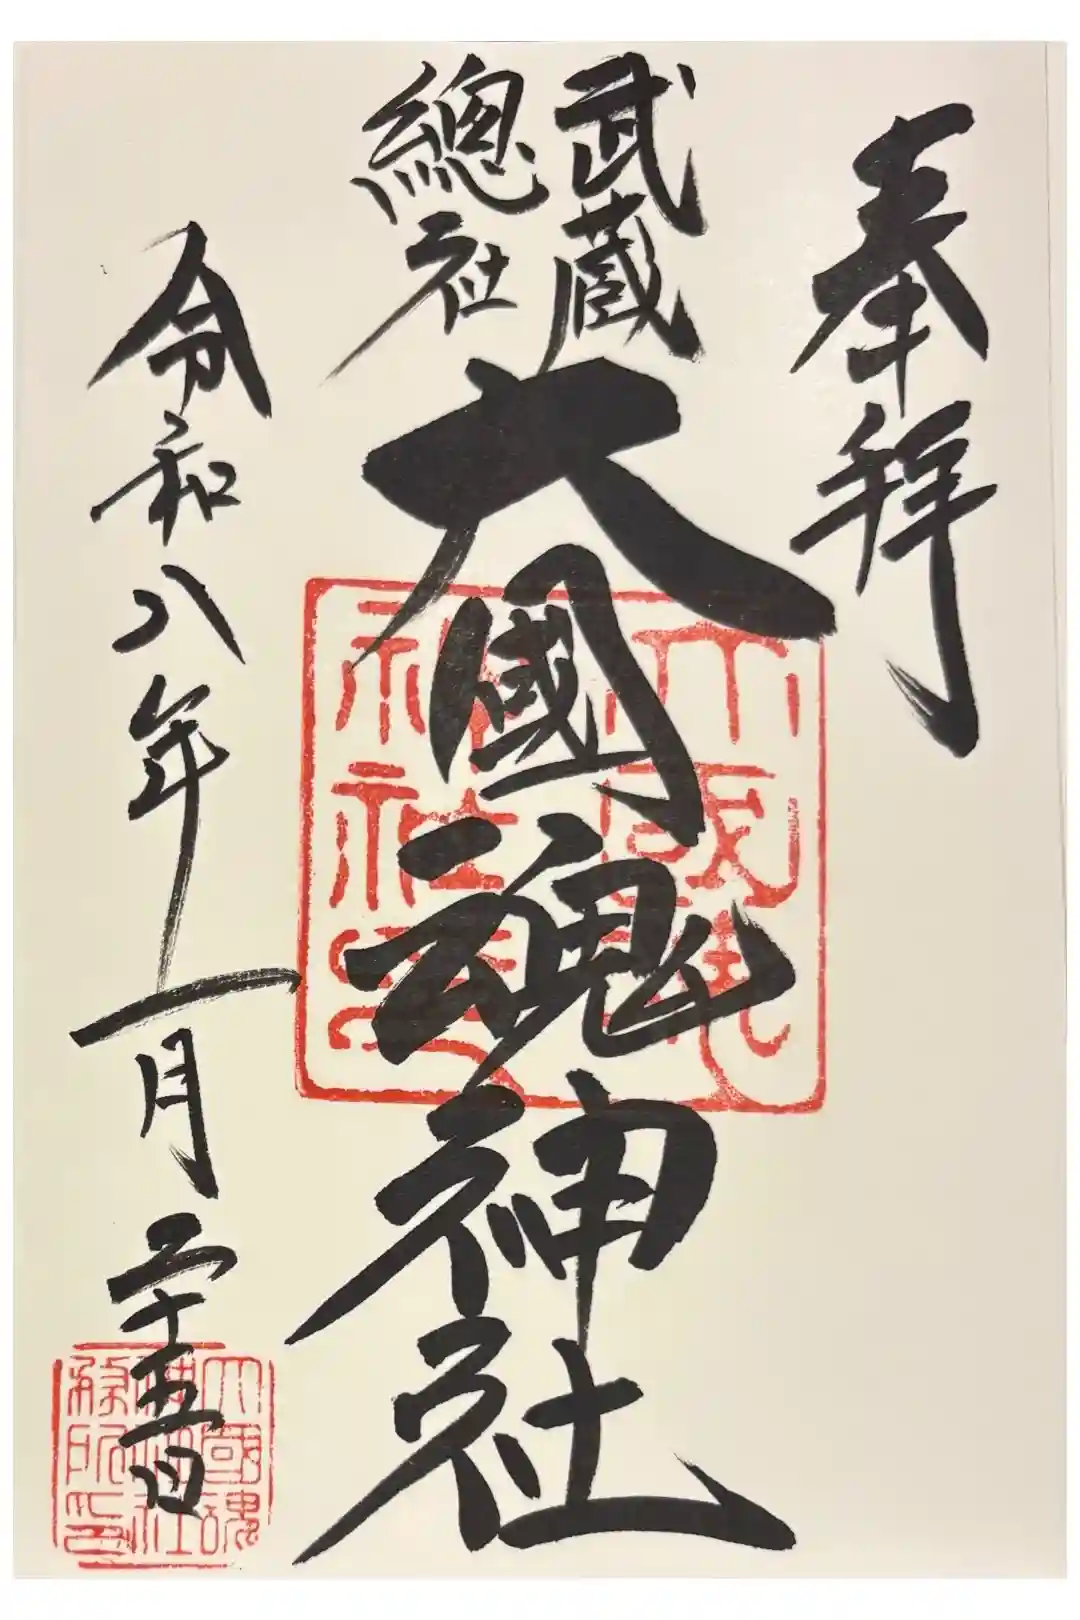 奉拝
武蔵
總社
大國魂神社
令和八年一月二十五日
大國魂
神社
大國魂
神社